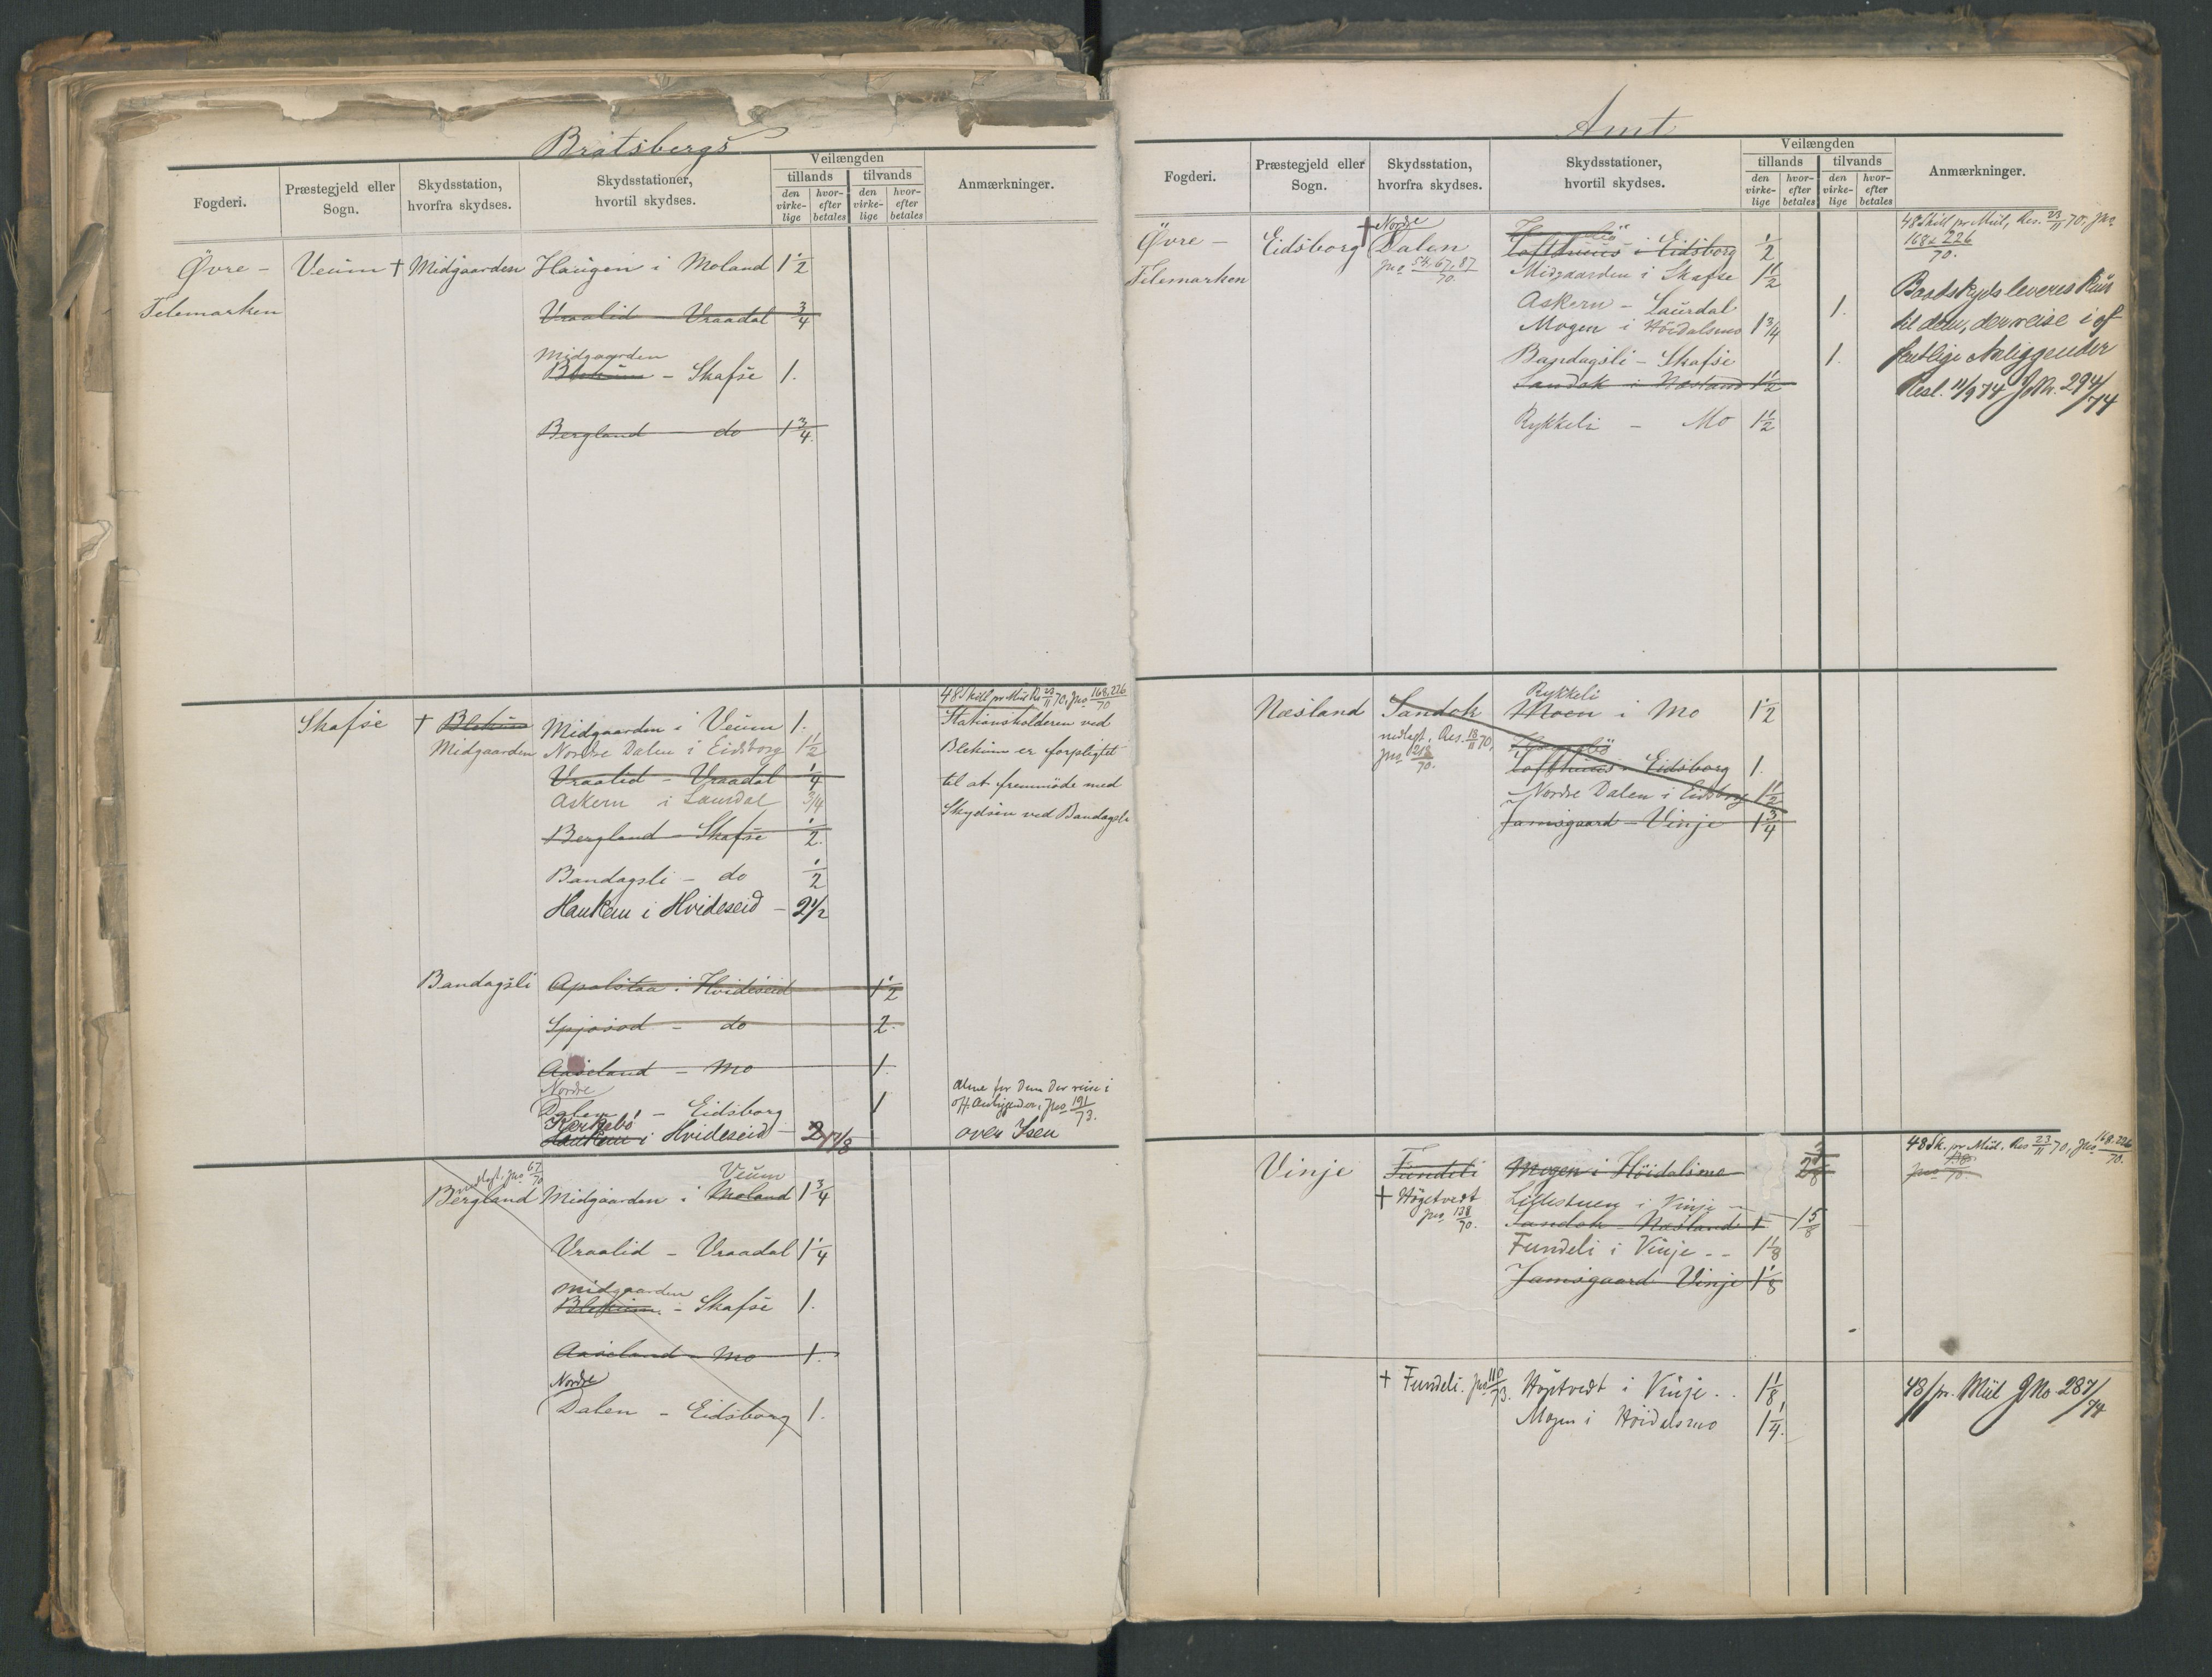 Bratsbergs
Fogderi.
Præstegjeld eller Sogn.
Skydsstation, hvorfra skydses.
Skydsstationer, hvortil skydses.
Veilængden
tillands
tilvands
den virkelige
hvorefter betales
den virkelige
hvorefter betales
Anmærkninger.
Øvre - Veum † Midgaarden Haugen i Moland 1 1/2
Telemarken
Vraalid - Vraadal 3/4
Midgaarden
Blekum - Skafse 1.
Bergland do 1 3/4.
48 Skill pr Miil Res 23/11 70, Jno 168.226/70
Skafse † Blekum Midgaarden i Veum 1.
Stationsholderen ved
Midgaarden Nordre Dalen i Eidsborg 1 1/2
Blekum er forpligtet
Vraalid - Vraadal 1/4
til at fremmøde med
Askern i Laurdal 3/4
Skydsen ved Bandagsli
Bergland - Skafse 1/2.
Bandagsli - do 1/2
Haukem i Hvideseid - 2 1/2
Bandagsli Apalstaa i Hvideseid 1 1/2
Spjosod - do 2.
Aaseland - Mo 1.
Nordre
Dalen - Eidsborg 1
Alene for dem der reise i
off. Anliggender, Jno 191/73.
Kirkebø
Haukem i Hvideseid - 2 1/8
over Isen
nedlagt, Jno 67/70
Veum
Bergland Midgaarden i Moland 1 3/4
Vraalid - Vraadal 1 1/4
Midgaarden
Blekum - Skafse 1.
Aaseland - Mo 1.
Nordre
Dalen - Eidsborg 1.
Amt
Fogderi.
Præstegjeld eller Sogn.
Skydsstation, hvorfra skydses.
Skydsstationer, hvortil skydses.
Veilængden
tillands
tilvands
den virkelige
hvorefter betales
den virkelige
hvorefter betales
Anmærkninger.
48 Skill pr Miil, Res. 23/11 70, Jno
168 & 226/70.
Nordre
Øvre - Eidsborg † Dalen
Lofthuus i Eidsborg 1/2
Telemarken
Jno 54, 67, 87/70.
Midgaarden i Skafse 1 1/2
Baadskyds leveres kun
Askern - Laurdal 1.
til dem, der reise i of
Mogen i Höidalsmo 1 3/4
Bandagsli - Skafse 1.
fentlige Anliggender
Sandok i Næsland 1 1/2
Resl. 11/9 74 JoNr. 294/74
Rykkeli - Mo 1 1/2
Rykkeli
Næsland Sandok Moen i Mo 1 1/2
nedlagt, Res. 18/11 70,
Jno 218/70.
Lofthuus - Eidsborg 1.
Nordre Dalen i Eidsborg 1 1/2
Jamsgaard - Vinje 1 3/4
48 Sk. pr Miil. Res 23/11 70, Jno 168.226/70.
Jno 138/70.
Vinje Fundeli Mogen i Höidalsmo
† Högetvedt
Jno 138/70.
Lillestuen i Vinje - 1 5/8
Sandok - Næsland 1
Fundeli i Vinje - - 1 1/8
Jamsgaard - Vinje 1 1/8
† Fundeli. Jno 110/73. Högtvedt i Vinje . . 1 1/8
48/ pr. Miil JNo 287/74
Mogen i Höidalsmo 1 1/4.